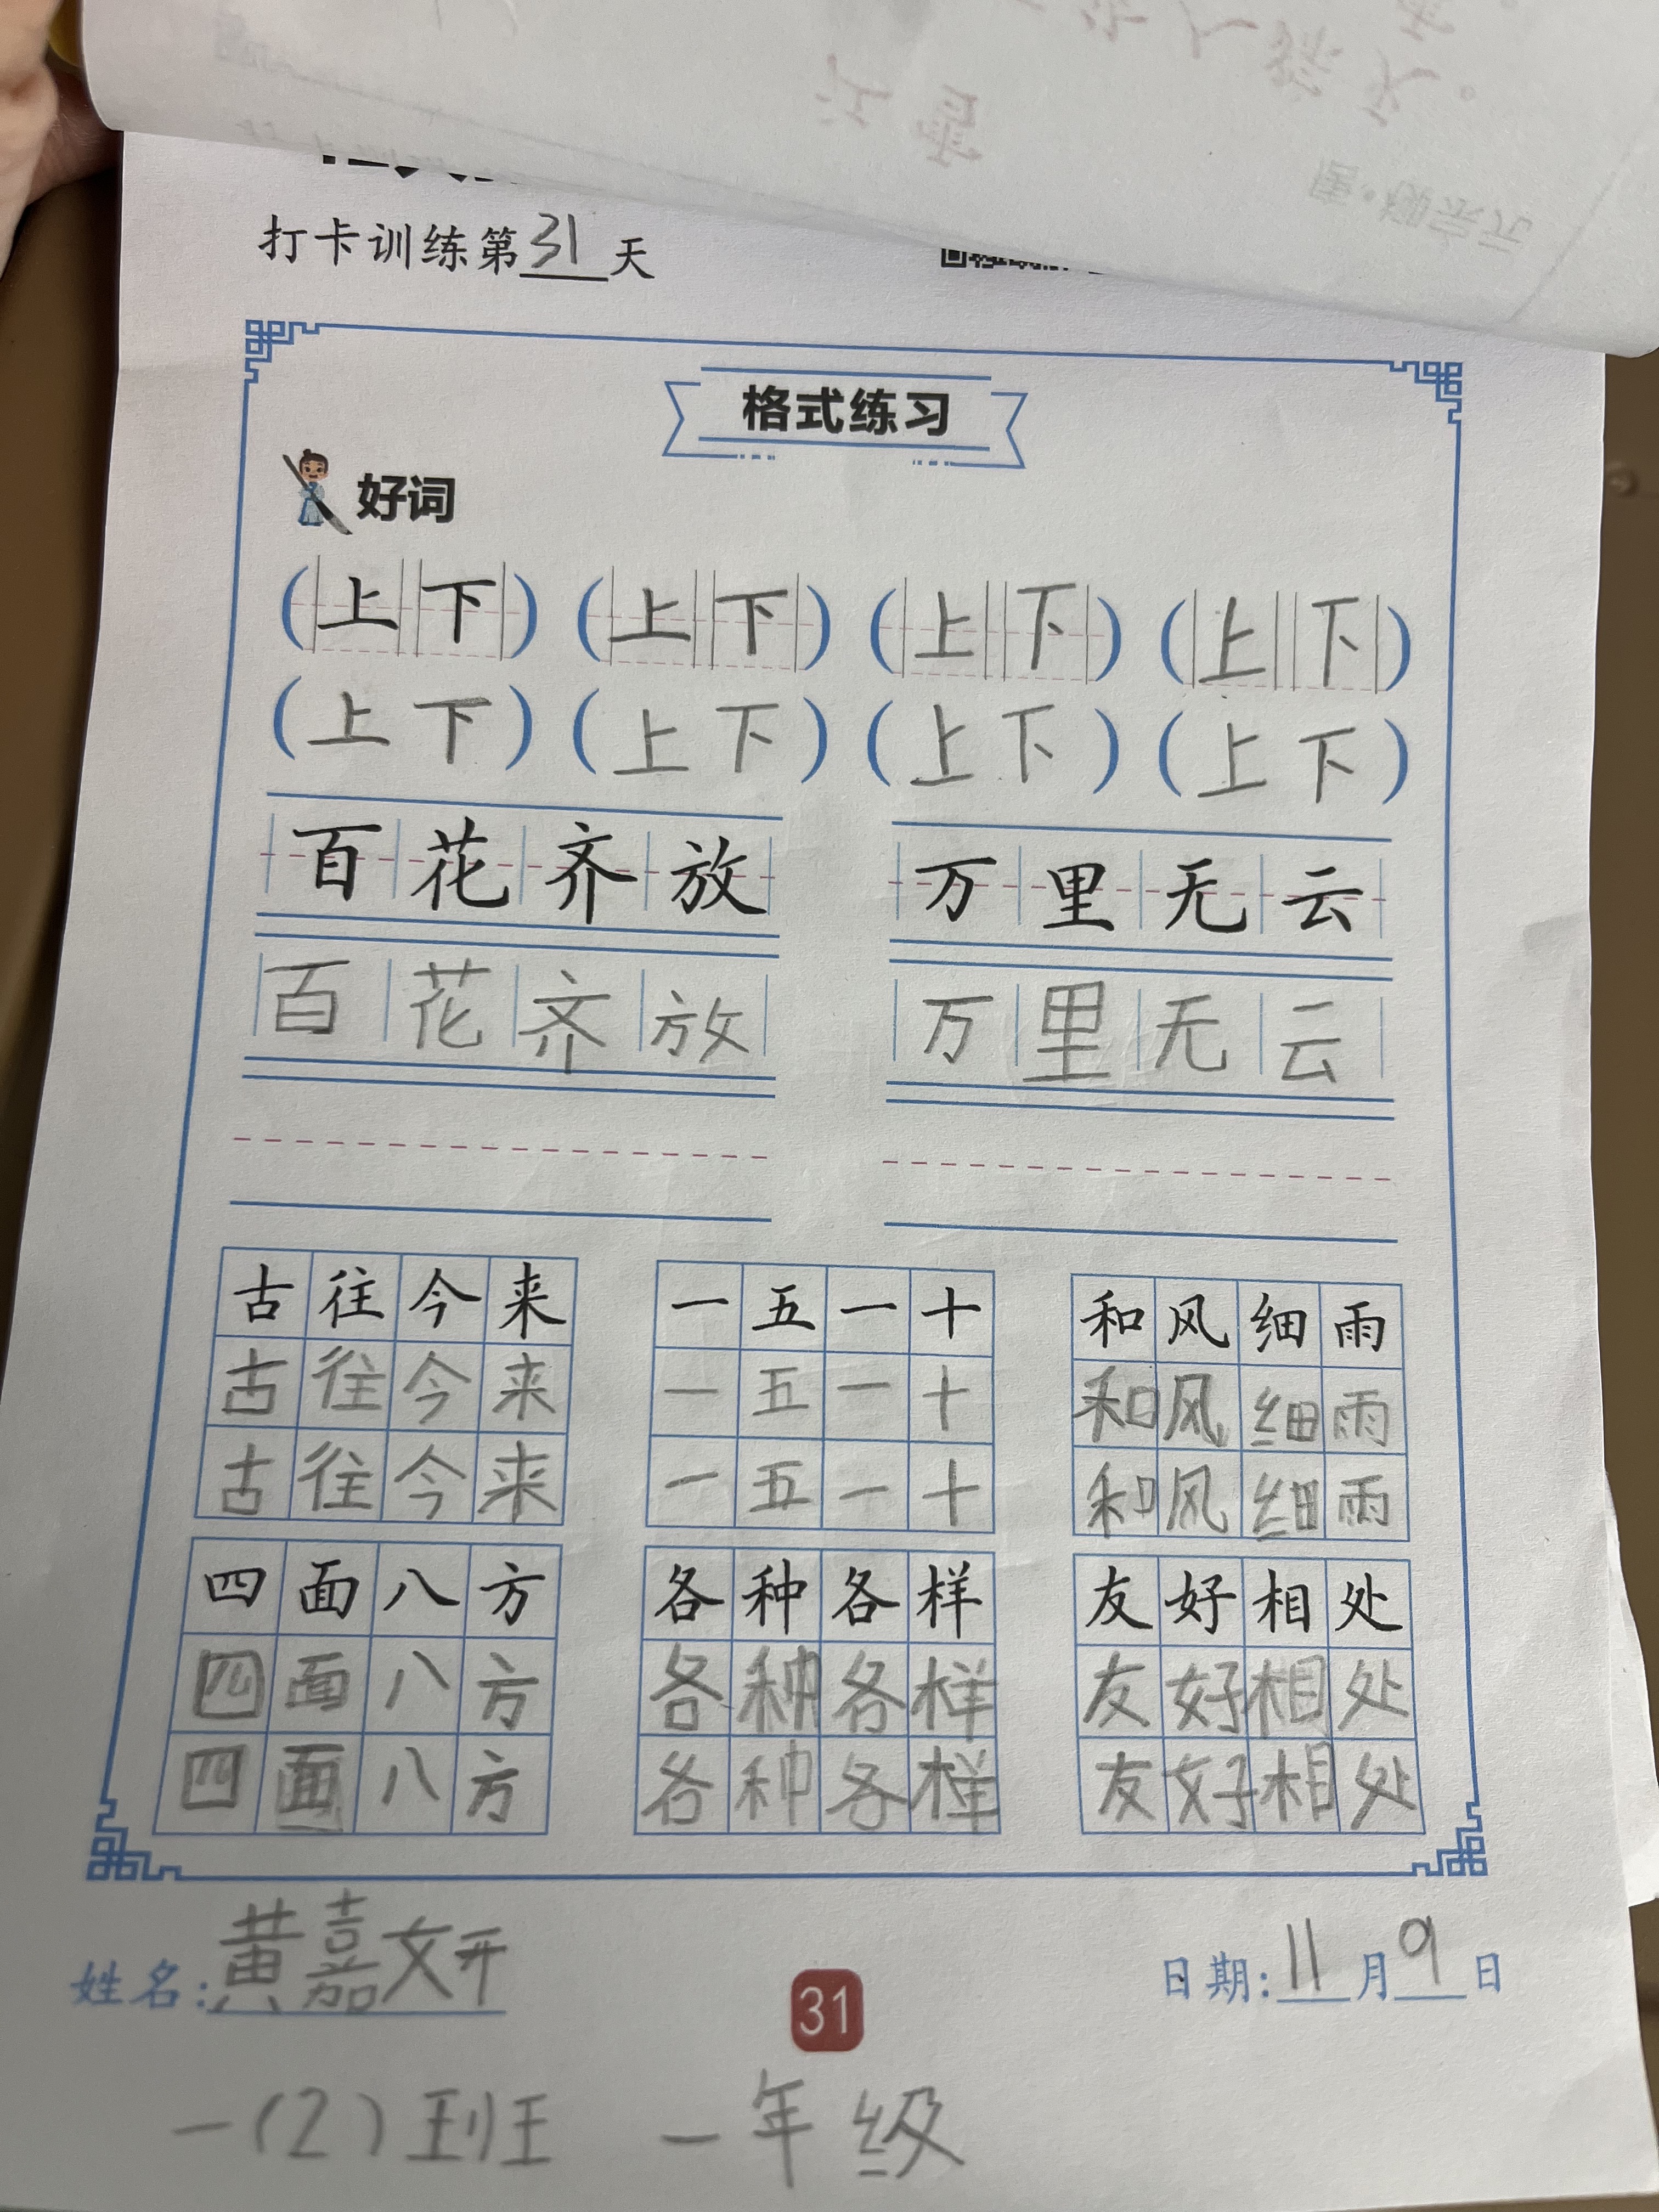 打卡训练第31天
格式练习
好词
(上下) (上下) (上下) (上下)
(上下) (上下) (上下) (上下)
百花齐放 万里无云
百花齐放 万里无云
古往今来 一五一十 和风细雨
古往今来 一五一十 和风细雨
古往今来 一五一十 和风细雨
四面八方 各种各样 友好相处
四面八方 各种各样 友好相处
四面八方 各种各样 友好相处
姓名:黄嘉文开 31 日期:11月9日
一(2)班 一年级